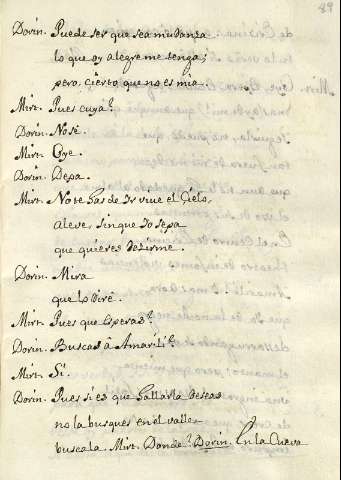 89
Dorin. Puede ser que sea mudanza
lo que oy alegre me tenga;
pero, cierto que no es mia.
Mirt. Pues cuya?
Dorin. No sè.
Mirt. Oye.
Dorin. Dexa.
Mirt. No te has de Ir vive el Cielo,
aleve, sin que Yo sepa
que quieres dezirme.
Dorin. Mira
que lo diré.
Mirt. Pues que esperas?
Dorin. Buscas â Amarili?
Mirt. Si.
Dorin. Pues si es que hallarla deseas
no la busques en el valle
buscala. Mirt. Donde? Dorin. En la Cueva